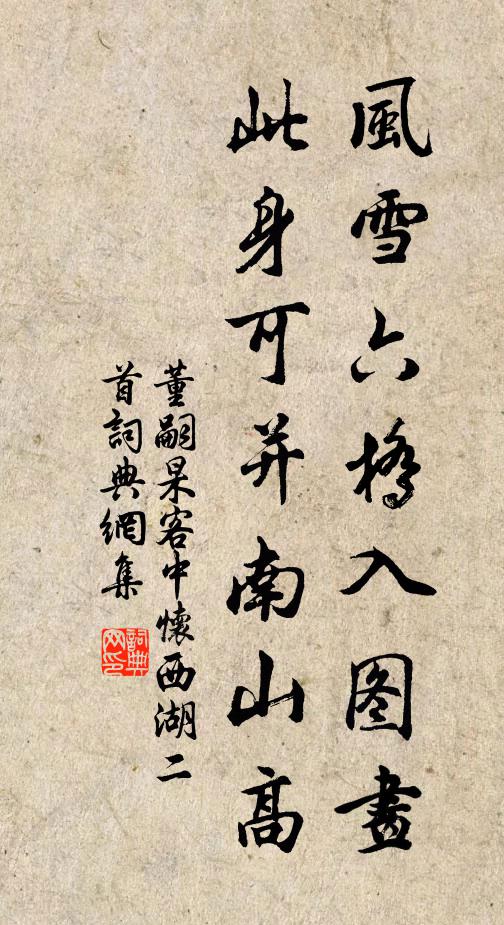 風雪六橋入图畫
此身可并南山高
董嗣杲客中懷西湖二
首詞典網集
詞典网印